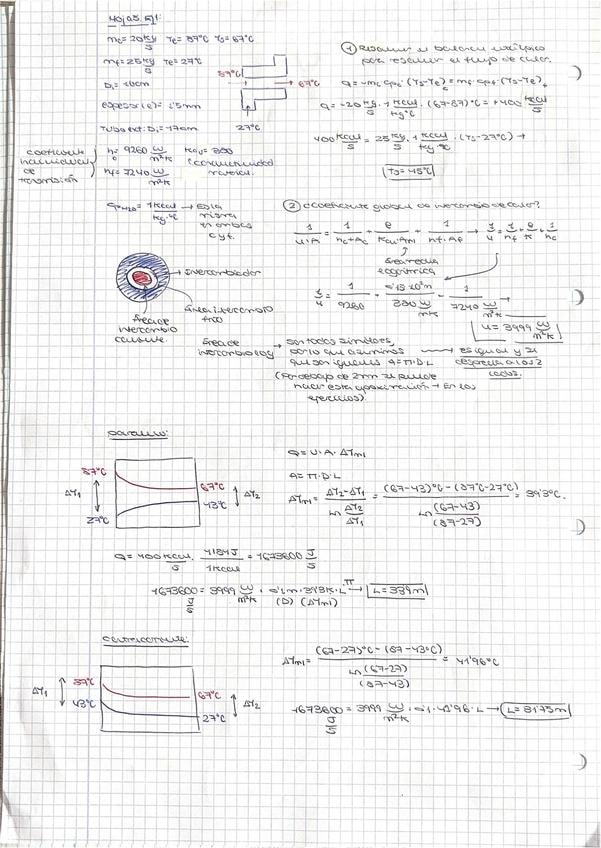 Hojas 51:
mc = 20 kg/s Te = 87°C Ts = 67°C
mf = 25 kg/s Te = 27°C
Di = 10cm
espesor (e) = 1'5mm
Tubo ext: Di = 17cm
hc = 9260 W/m²K Kacu = 330
hf = 7240 W/m²K (conductividad
coeficientes
de
transmisión
87°C
67°C
27°C
CpH2O = 1 kcal/kg·°C → Es la
misma
en ambos
① Realizar el balance
para el flujo de calor.
Q = -mc · cpc · (Ts-Te)c = mf · cpf · (Ts-Te)f
Q = -20 kg/s · 1 kcal/kg°C · (67-87)°C = +400 kcal/s
400 kcal/s = 25 kg/s · 1 kcal/kg·°C · (Ts-27°C) →
Ts = 43°C
② Coeficiente global de intercambio de calor?
1/U·A = 1/hc·Ac + e/Kacu·Aml + 1/hf·Af → 1/U = 1/hf + e/K + 1/hc
Área media
logarítmica
1/U = 1/9260 + 1'5·10⁻³m/330 W/mK + 1/7240 W/m²K →
U = 3999 W/m²K
→ Intercambiador
Área intercambio
frío
Área de
intercambio
caliente
Área de
intercambio → son todas similares,
por lo que asumimos → es igual y se
que son iguales A = π·D·L despeja a los 2
lados.
(Por debajo de 2mm se puede
hacer esta aproximación → En los
ejercicios)
paralelo:
87°C
67°C
43°C
27°C
ΔT1
ΔT2
Q = U·A·ΔTml
A = π·D·L
ΔTml = ΔT2-ΔT1 / ln ΔT2/ΔT1 = (67-43)°C - (87°C-27°C) / ln (67-43)/(87-27) = 39'3°C.
Q = 400 kcal/s · 4184J/1kcal = 1673600 J/s
1673600 J/s = 3999 W/m²K · 0'1m · 39'3K · L · π → L = 33'9m
(D) (ΔTml)
contracorriente:
87°C
43°C
67°C
27°C
ΔT1
ΔT2
ΔTml = (67-27)°C - (87-43°C) / ln (67-27)/(87-43) = 41'96°C
1673600 J/s = 3999 W/m²K · 0'1 · 41'96 · L → L = 31'75m